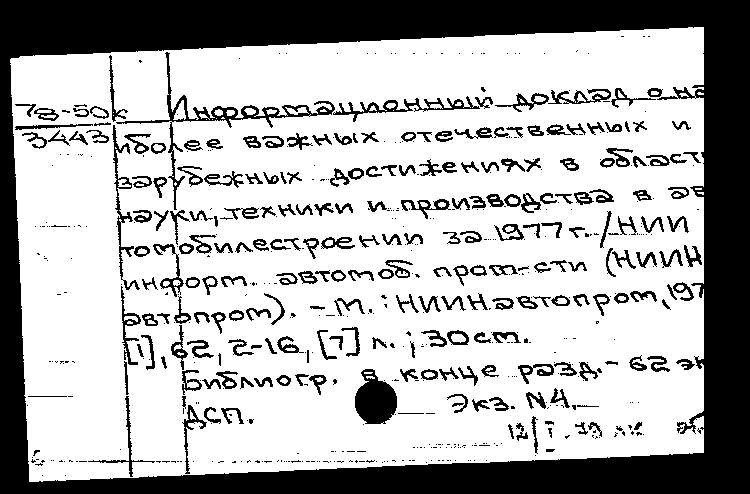 78-50к Информационный доклад о на
3443 иболее важных отечественных и
зарубежных достижениях в област
науки, техники и производства в ав
томобилестроении за 1977 г. / НИИ
информ. автомоб. пром-сти (НИИН
автопром). - М. : НИИНавтопром, 197
[1], 62, 2-16, [7] л. ; 30 см.
Библиогр. в конце разд. - 62 эк
ДСП. Экз. N4.
12/I.79